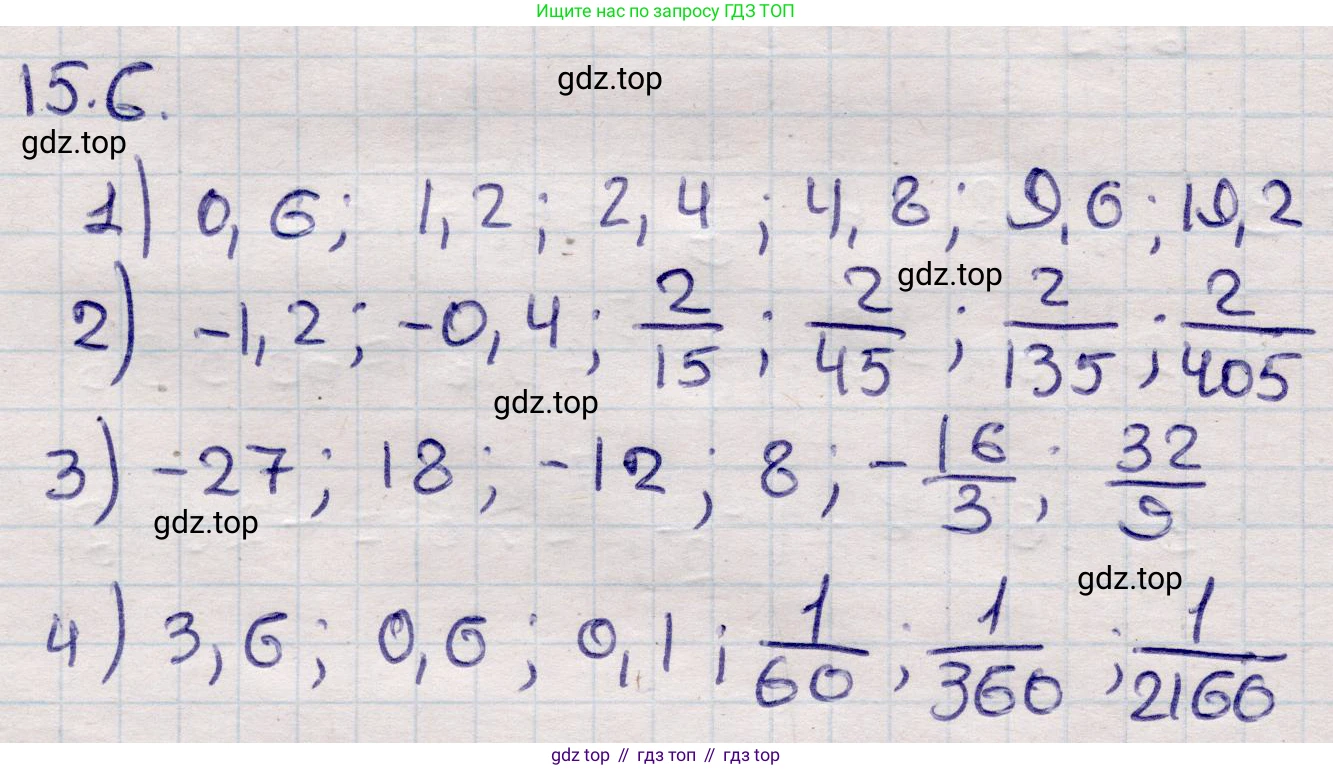 Ищите нас по запросу ГДЗ ТОП
15.6.
gdz.top
gdz.top
1) 0,6; 1,2; 2,4; 4,8; 9,6; 19,2
gdz.top
2) -1,2; -0,4; 2/15; 2/45; 2/135; 2/405
gdz.top
3) -27; 18; -12; 8; -16/3; 32/9
gdz.top
gdz.top
4) 3,6; 0,6; 0,1; 1/60; 1/360; 1/2160
gdz top // гдз топ // gdz top